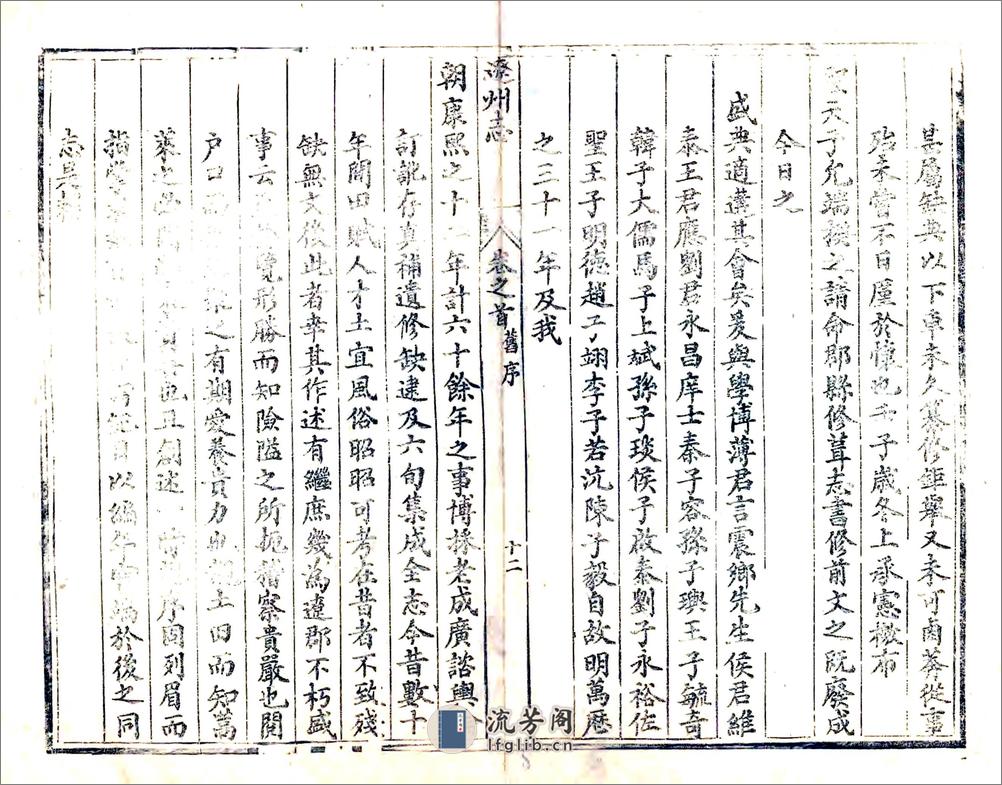 甚屬缺典以下車未久纂修鉅舉又未可鹵莽從事
殆未嘗不日廑於懷也壬子歲冬上承憲檄布
天子允端揆之請命郡縣修葺志書修前文之既廢成
今日之
盛典適遘其會矣爰與學博薄君言震鄉先生侯君維
泰王君應劉君永昌庠士秦子容孫子璵王子毓奇
韓子大儒馬子上斌孫子琰侯子啟泰劉子永裕佐
聖王子明德趙子翊李子若沆陳子毅自故明萬歷
之三十一年及我
遼州志 卷之首 舊序 十二
朝康熙之十 年計六十餘年之事博採老成廣諮輿
訂訛存真補遺修缺逮及六旬集成全志今昔數十
年間田賦人才土宜風俗昭昭可考在昔者不致殘
缺無文後此者幸其作述有繼庶幾為遼郡不朽盛
事云 覽形勝而知險隘之所扼稽察貴嚴也閱
戶口 之有期愛養貴力也 土田而知萬
萊之 也且創述 序固列眉而
指掌 以編年 於後之同
志
流芳阁
lfglib.cn